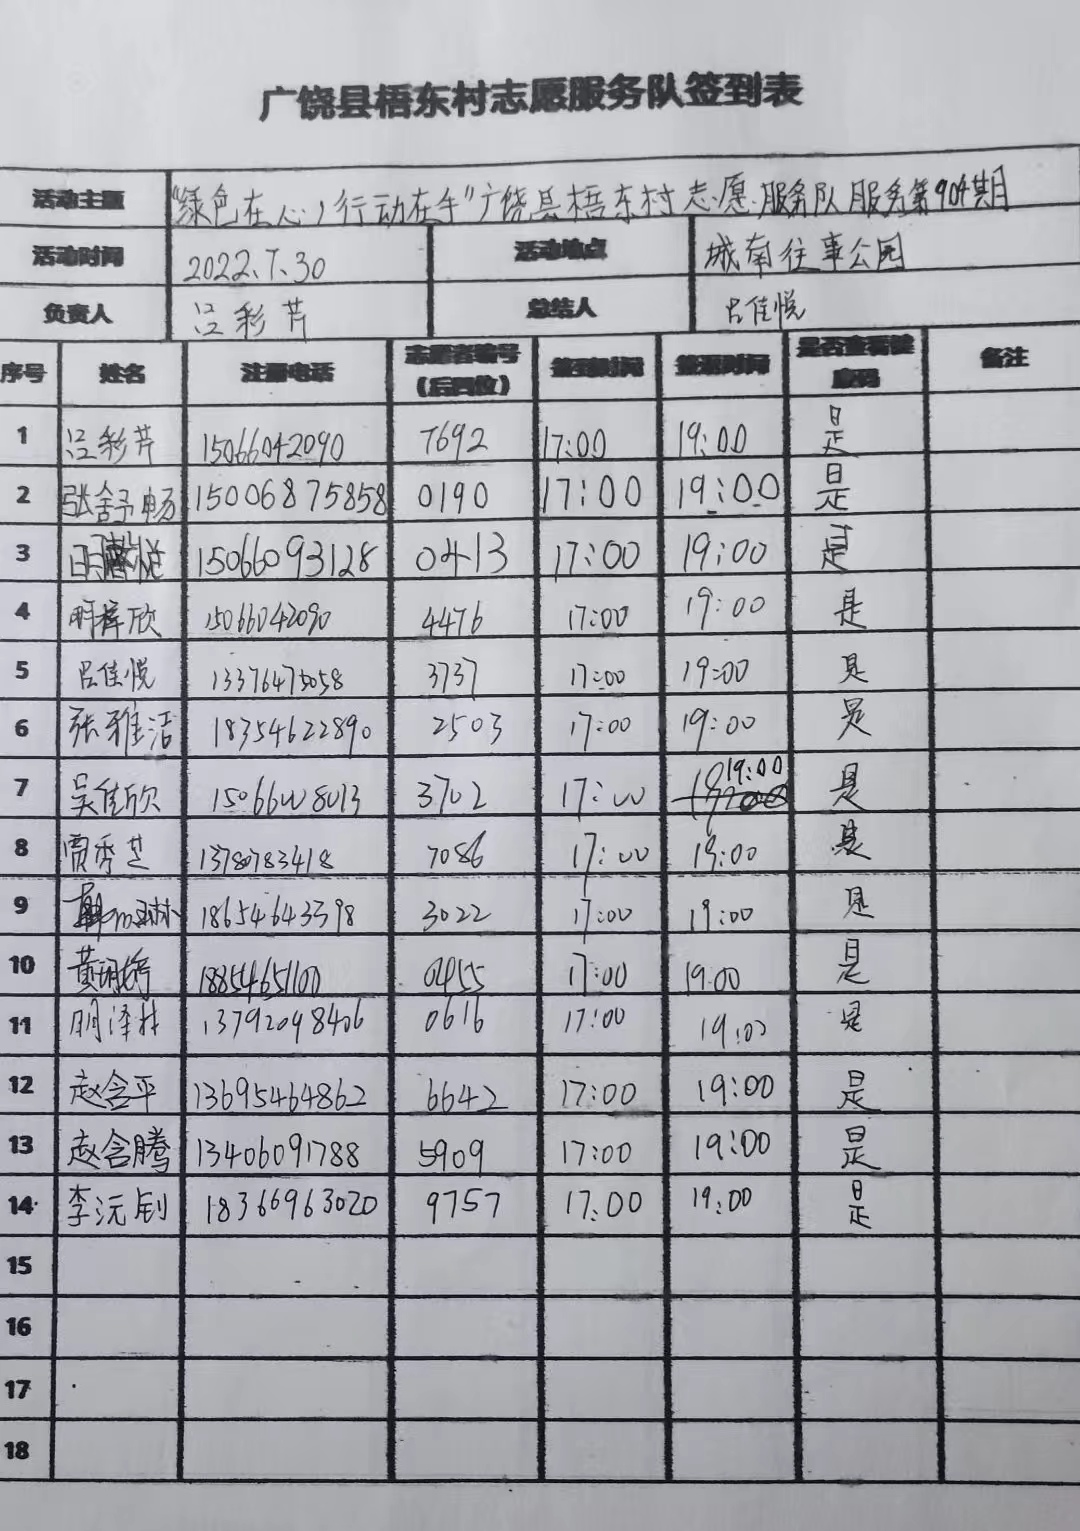 广饶县梧东村志愿服务队签到表
活动主题 "绿色在心,行动在手"广饶县梧东村志愿服务队服务第904期
活动时间 2022.7.30 活动地点 城南往事公园
负责人 汪彩芹 总结人 吕佳悦
序号 姓名 注册电话 志愿者编号(后四位) 签到时间 签退时间 是否查看健康码 备注
1 汪彩芹 15066042090 7692 17:00 19:00 是
2 张舒畅 15006875858 0190 17:00 19:00 是
3 15066093128 0413 17:00 19:00 是
4 明梓欣 15066042090 4476 17:00 19:00 是
5 吕佳悦 13376475058 3737 17:00 19:00 是
6 张雅洁 18354622890 2503 17:00 19:00 是
7 吴佳欣 15066008013 3702 17:00 19:00 是
8 贾秀芝 13780783418 7086 17:00 19:00 是
9 18654643398 3022 17:00 19:00 是
10 18854651100 0455 17:00 19:00 是
11 明泽林 13792098406 0616 17:00 19:00 是
12 赵含平 13695464862 6642 17:00 19:00 是
13 赵含腾 13406091788 5909 17:00 19:00 是
14 李沅钊 18366963020 9757 17:00 19:00 是
15
16
17
18